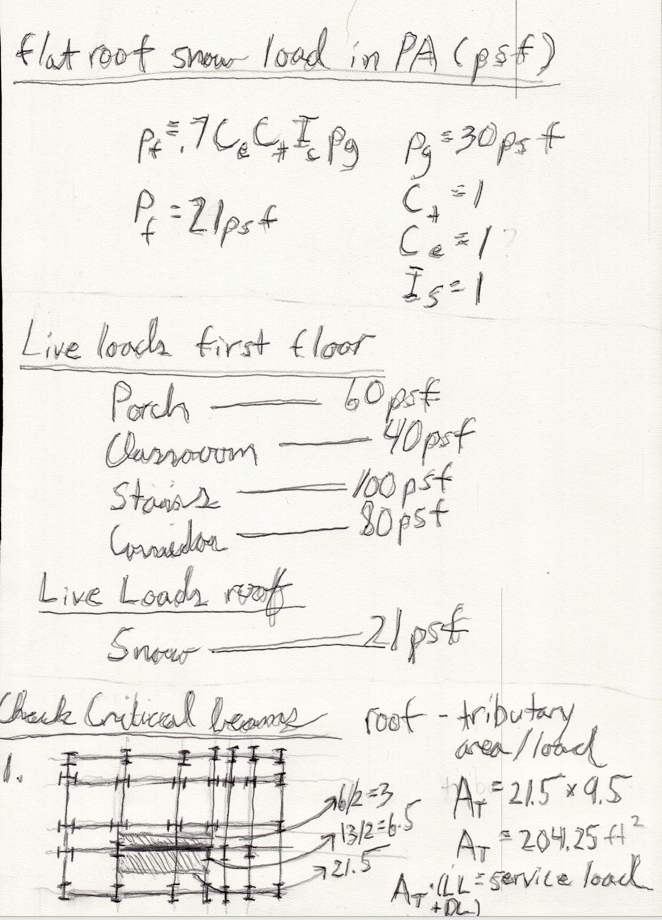 flat roof snow load in PA (psf)
Pf = .7 Ce Ct Is Pg
Pf = 21psf
Pg = 30psf
Ct = 1
Ce = 1
Is = 1
Live loads first floor
Porch — 60psf
Classroom — 40psf
Stairs — 100psf
Corridor — 80psf
Live Loads roof
Snow — 21psf
Check Critical beams
1.
6/2=3
13/2=6.5
21.5
roof - tributary
area/load
AT = 21.5 x 9.5
AT = 204.25 ft²
AT · (LL + DL) = service load